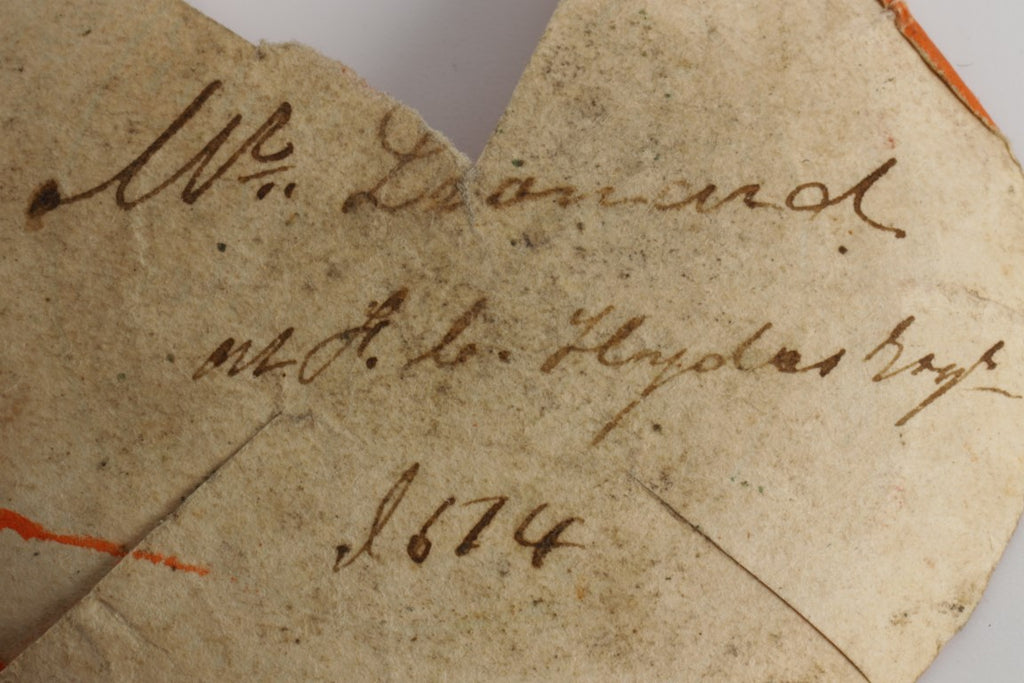 Mr. Leonard
at H. C. Hydes Esqr
1674